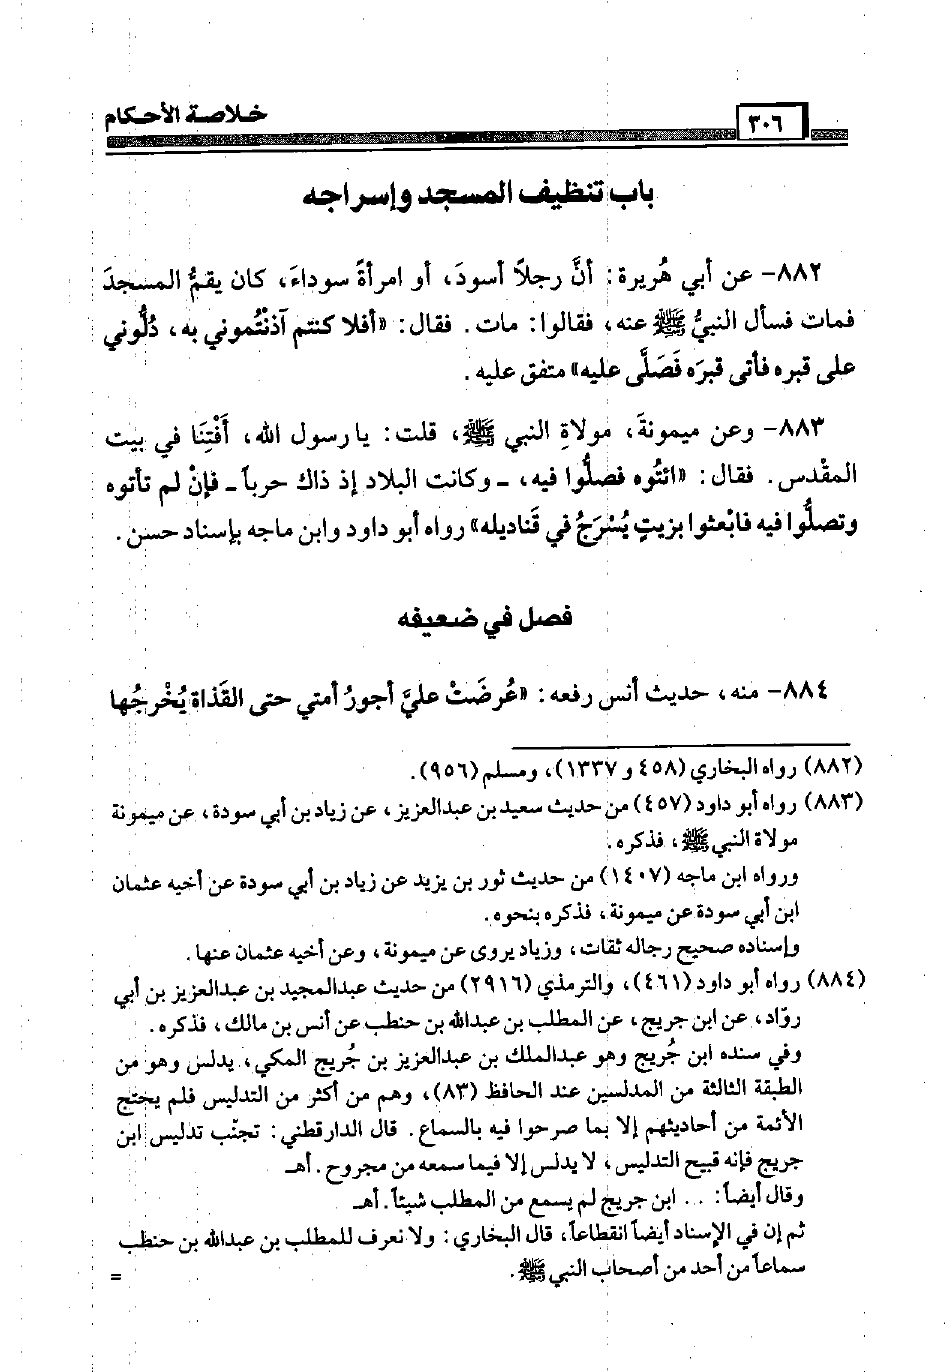 خلاصة الأحكام
٣٠٦
باب تنظيف المسجد وإسراجه
٨٨٢- عن أبي هُريرة: أنَّ رجلاً أسودَ، أو امرأةً سوداءَ، كان يقمُّ المسجدَ
فمات فسأل النبيُّ ﷺ عنه، فقالوا: مات. فقال: «أفلا كنتم آذنْتُموني به، دُلُّوني
على قبره فأتى قبرَه فَصَلَّى عليه» متفق عليه.
٨٨٣- وعن ميمونةَ، مولاةِ النبي ﷺ، قلت: يا رسول الله، أَفْتِنَا في بيت
المقْدس. فقال: «ائتُوه فصلُّوا فيه، ـ وكانت البلاد إذ ذاك حرباً ـ فإنْ لم تأتوه
وتصلُّوا فيه فابْعثوا بزيتٍ يُسْرَجُ في قَناديله» رواه أبو داود وابن ماجه بإسناد حسن.
فصل في ضعيفه
٨٨٤- منه، حديث أنس رفعه: «عُرضَتْ عليَّ أجورُ أمتي حتى القَذاة يُخْرجُها
(٨٨٢) رواه البخاري (٤٥٨ و ١٣٣٧)، ومسلم (٩٥٦).
(٨٨٣) رواه أبو داود (٤٥٧) من حديث سعيد بن عبدالعزيز، عن زياد بن أبي سودة، عن ميمونة
مولاة النبي ﷺ، فذكره.
ورواه ابن ماجه (١٤٠٧) من حديث ثور بن يزيد عن زياد بن أبي سودة عن أخيه عثمان
ابن أبي سودة عن ميمونة، فذكره بنحوه.
وإسناده صحيح رجاله ثقات، وزياد يروى عن ميمونة، وعن أخيه عثمان عنها.
(٨٨٤) رواه أبو داود (٤٦١)، والترمذي (٢٩١٦) من حديث عبدالمجيد بن عبدالعزيز بن أبي
روّاد، عن ابن جريج، عن المطلب بن عبدالله بن حنطب عن أنس بن مالك، فذكره.
وفي سنده ابن جُريج وهو عبدالملك بن عبدالعزيز بن جُريج المكي، يدلس وهو من
الطبقة الثالثة من المدلسين عند الحافظ (٨٣)، وهم من أكثر من التدليس فلم يحتج
الأئمة من أحاديثهم إلا بما صرحوا فيه بالسماع. قال الدارقطني: تجنّب تدليس ابن
جريج فإنه قبيح التدليس، لا يدلس إلا فيما سمعه من مجروح. أهـ
وقال أيضاً: .. ابن جريج لم يسمع من المطلب شيئاً. أهـ
ثم إن في الإسناد أيضاً انقطاعاً، قال البخاري: ولا نعرف للمطلب بن عبدالله بن حنطب
سماعاً من أحد من أصحاب النبي ﷺ.
=